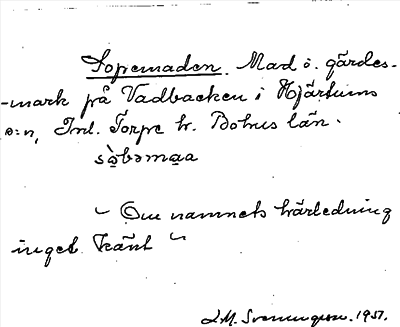 Sopemaden. Mad o. gärdes-
-mark på Vadbacken i Hjärtums
s:n, Inl. Torpe hr. Bohus län.
sòbəmaa
" Om namnets härledning
inget känt "
L.M. Svenungsson. 1951.